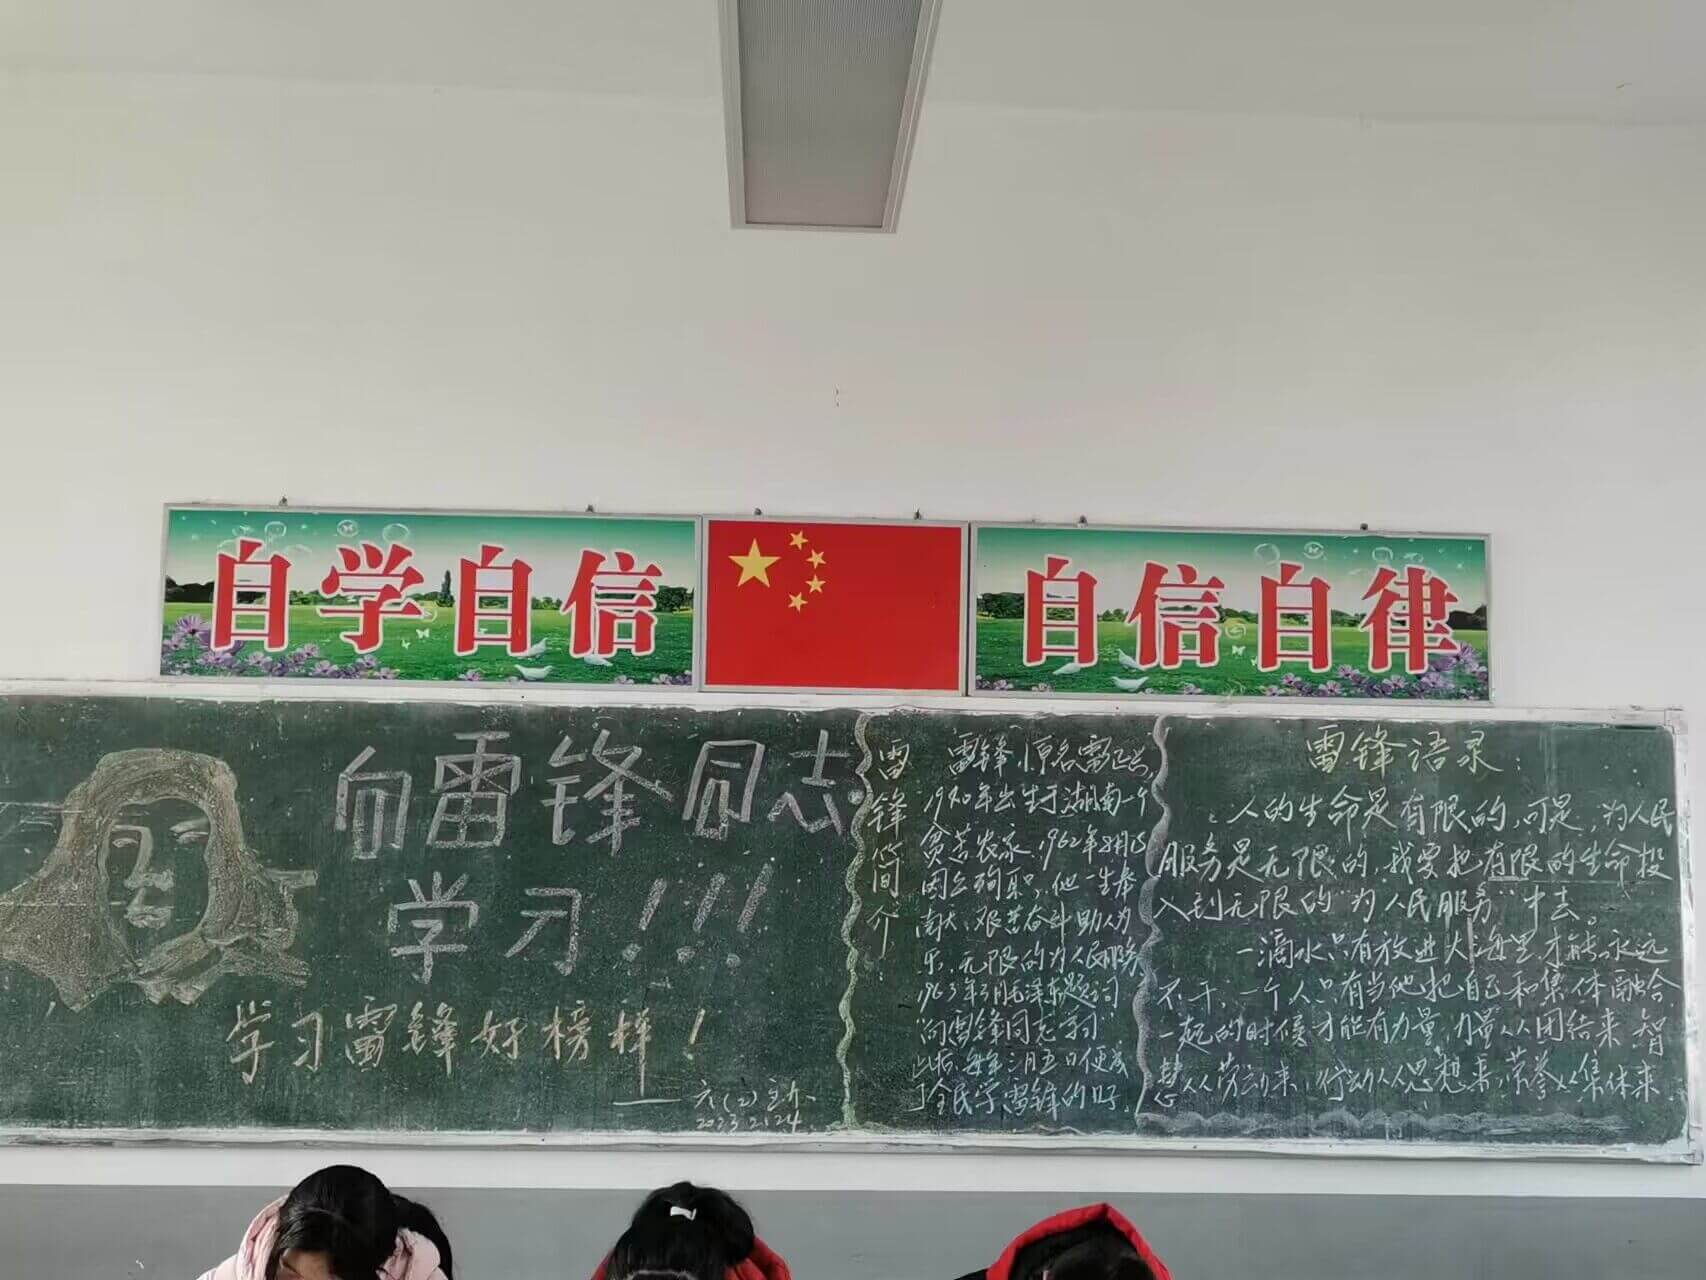 自学自信
自信自律
向雷锋同志
学习!!!
学习雷锋好榜样!
六(2)
2023.2.24.
雷锋简介:
雷锋,原名雷正兴,
1940年出生于湖南一个
贫苦农家,1962年8月15
因公殉职,他一生奉
艰苦奋斗助人为
乐,无限的为人民服务
1963年3月毛泽东题词
“向雷锋同志学习”
此后,每年三月五日便成
了全民学雷锋的日.
雷锋语录:
人的生命是有限的,可是,为人民
服务是无限的,我要把有限的生命投
入到无限的“为人民服务”中去。
一滴水只有放进大海里才能永远
不干,一个人只有当他把自己和集体融合
一起的时候才能有力量,力量从团结来,智
慧从劳动来,行动从思想来,荣誉从集体来